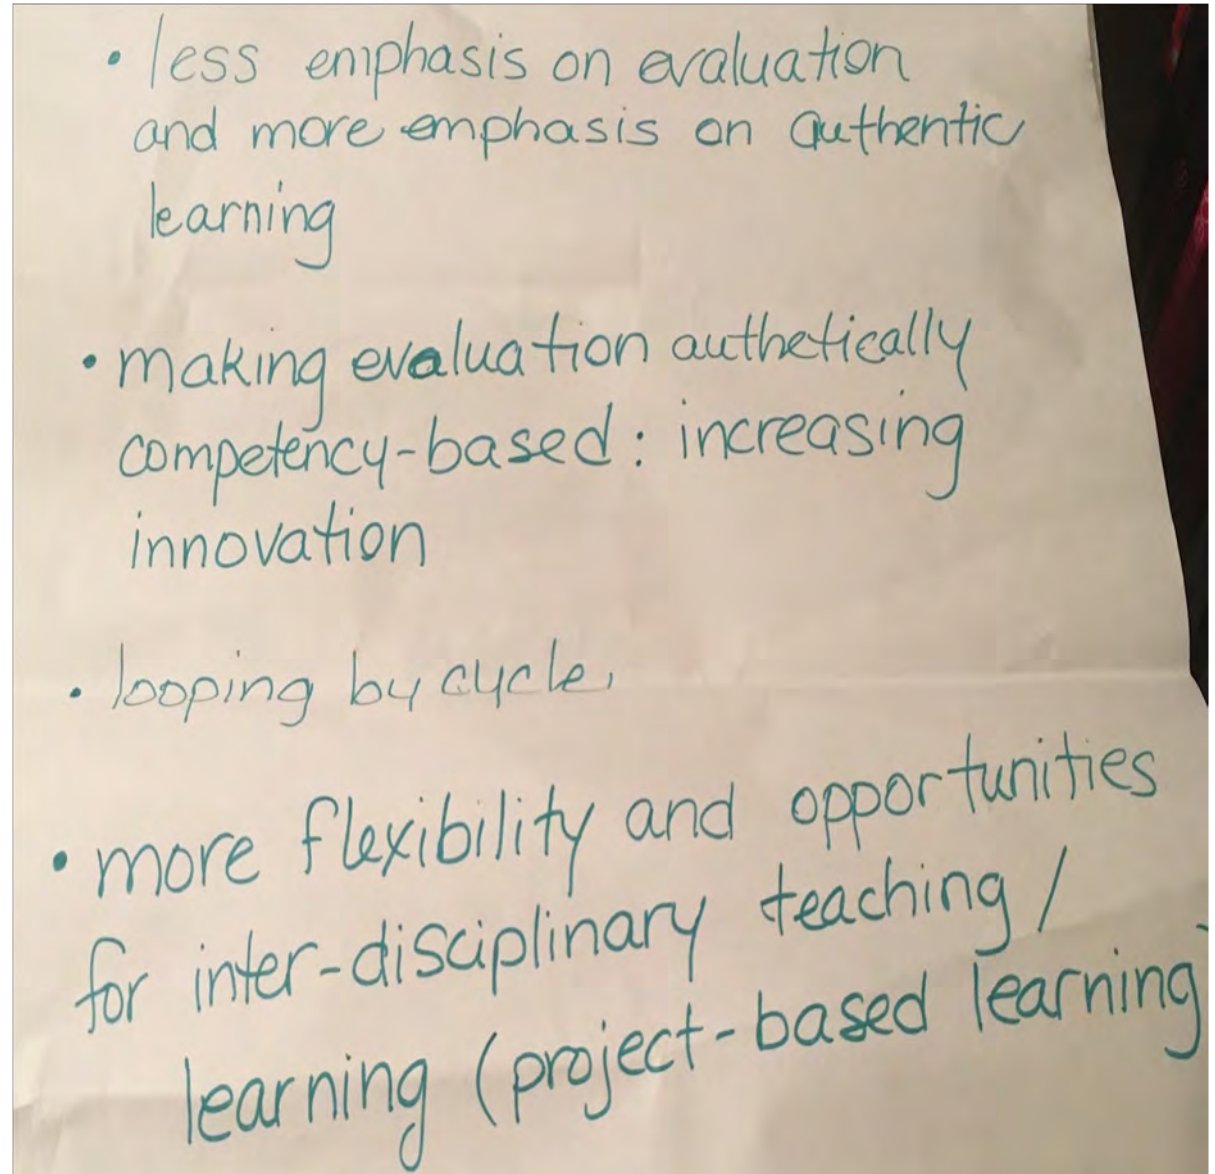 • less emphasis on evaluation
and more emphasis on authentic
learning
• making evaluation authetically
competency-based: increasing
innovation
• looping by cycle,
• more flexibility and opportunities
for inter-disciplinary teaching /
learning (project-based learning